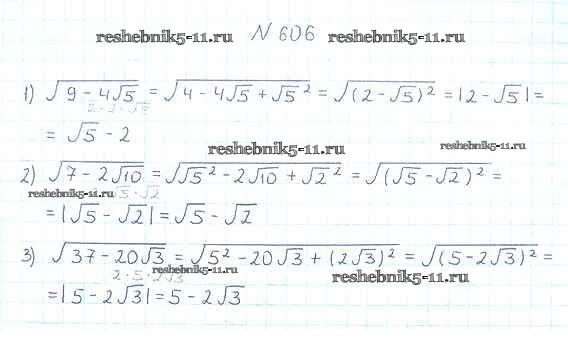 reshebnik5-11.ru N 606 reshebnik5-11.ru
1) √(9 - 4√5) = √(4 - 4√5 + √5²) = √((2 - √5)²) = |2 - √5| =
2·2·√5
= √5 - 2
reshebnik5-11.ru reshebnik5-11.ru
2) √(7 - 2√10) = √(√5² - 2√10 + √2²) = √((√5 - √2)²) =
reshebnik5-11.ru √5·√2
= |√5 - √2| = √5 - √2
3) √(37 - 20√3) = √(5² - 20√3 + (2√3)²) = √((5 - 2√3)²) =
2·5·2√3 reshebnik5-11.ru reshebnik5-11.ru
= |5 - 2√3| = 5 - 2√3